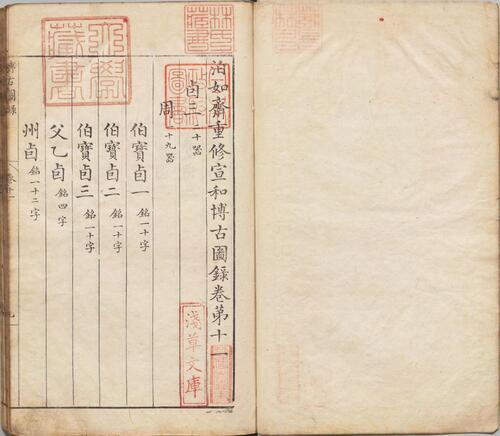 泊如齋重修宣和博古圖錄卷第十一
卣三 二十器
周 十九器
伯寶卣一 銘一十字
伯寶卣二 銘一十字
伯寶卣三 銘一十字
父乙卣 銘四字
州卣 銘一十二字
博古圖錄
卷十一
林氏藏書
淺草文庫